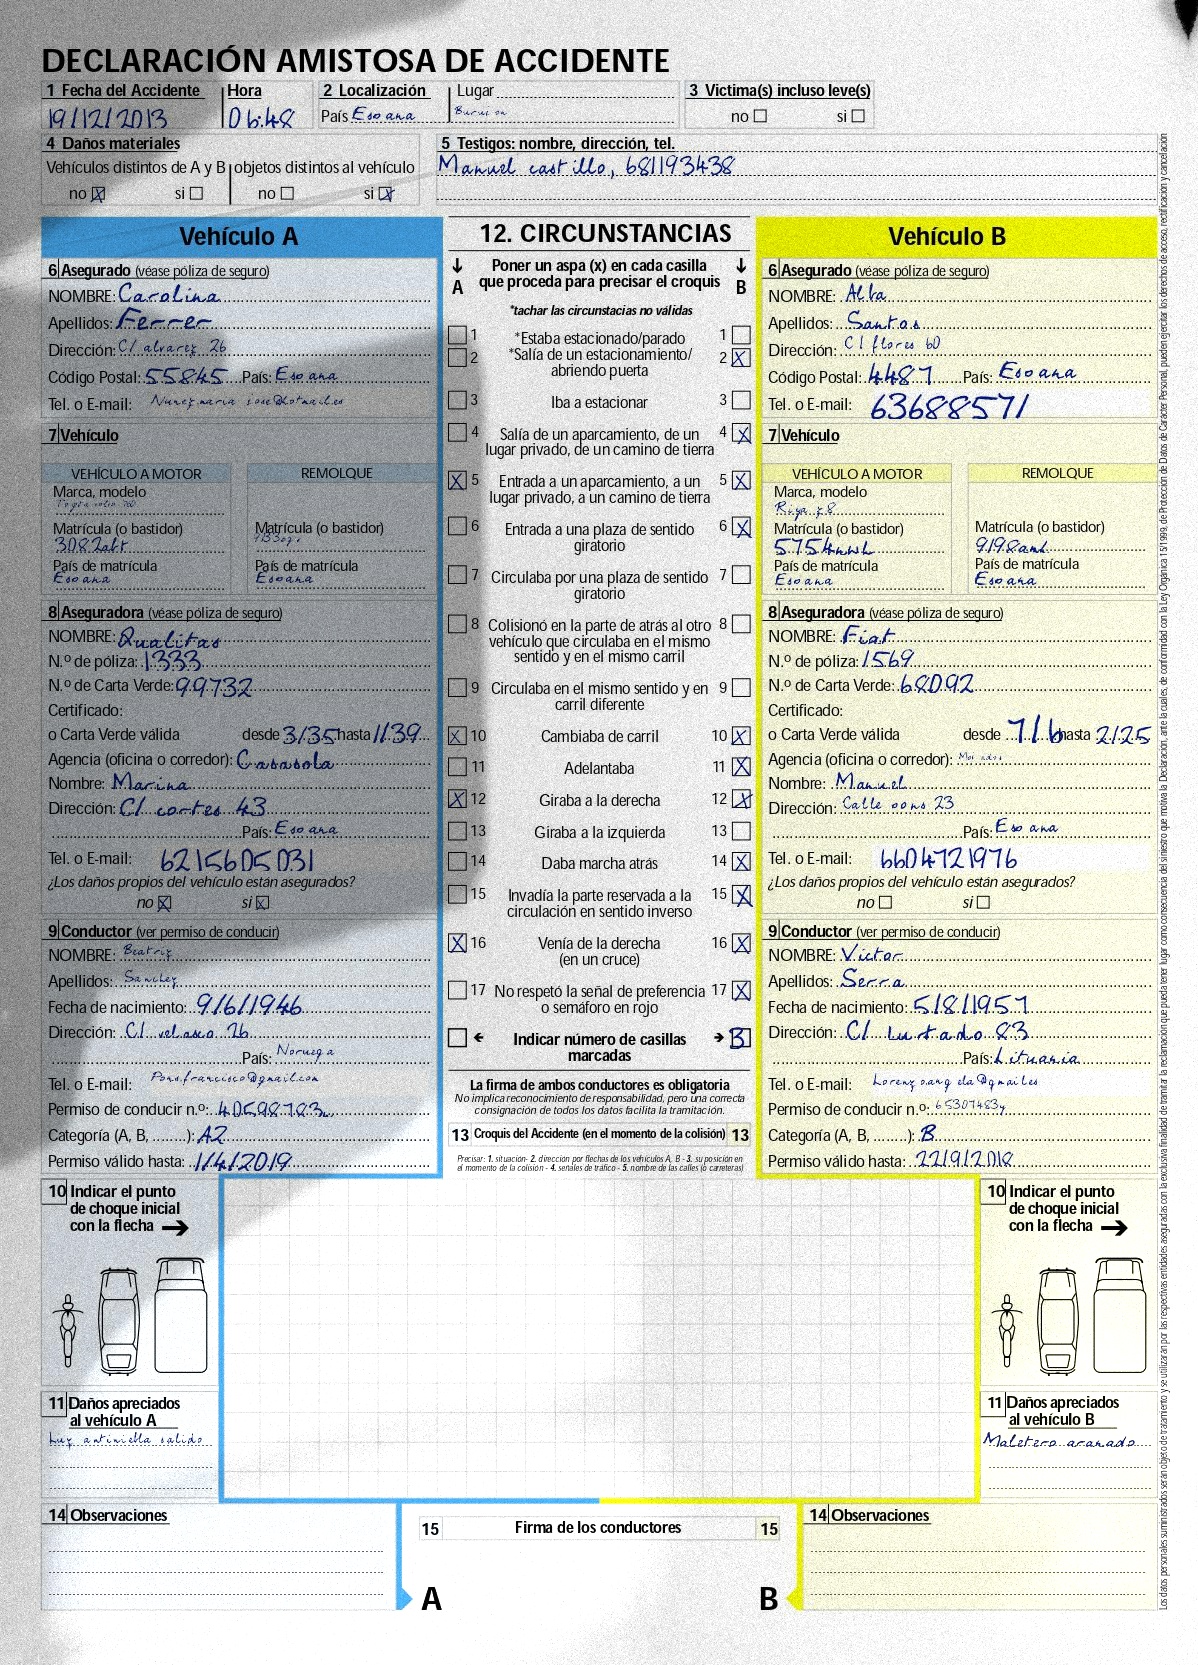 DECLARACIÓN AMISTOSA DE ACCIDENTE
1 Fecha del Accidente Hora 2 Localización Lugar 3 Victima(s) incluso leve(s)
19/12/2013 06:48 País Espana no si
4 Daños materiales 5 Testigos: nombre, dirección, tel.
Vehículos distintos de A y B objetos distintos al vehículo Manuel castillo, 681193438
no X si no si X
Vehículo A
6 Asegurado (véase póliza de seguro)
NOMBRE: Carolina
Apellidos: Ferrer
Dirección: C/ alvarez 26
Código Postal: 55845 País: Espana
Tel. o E-mail: Nunezmaria jose@hotmail.es
7 Vehículo
VEHÍCULO A MOTOR REMOLQUE
Marca, modelo
Matrícula (o bastidor) Matrícula (o bastidor)
3082alt
País de matrícula País de matrícula
Espana Espana
8 Aseguradora (véase póliza de seguro)
NOMBRE: Qualitas
N.º de póliza: 1333
N.º de Carta Verde: 99732
Certificado:
o Carta Verde válida desde 3/35 hasta 1/39
Agencia (oficina o corredor): Casasola
Nombre: Marina
Dirección: C/ cortes 43
País: Espana
Tel. o E-mail: 6215605031
¿Los daños propios del vehículo están asegurados?
no X si X
9 Conductor (ver permiso de conducir)
NOMBRE: Beatriz
Apellidos: Sanchez
Fecha de nacimiento: 9/6/1946
Dirección: C/ velasco 26
País: Noruega
Tel. o E-mail: Pons.francisco@gmail.com
Permiso de conducir n.º: 40598783
Categoría (A, B, ........): A2
Permiso válido hasta: 1/4/2019
12. CIRCUNSTANCIAS
Poner un aspa (x) en cada casilla
A que proceda para precisar el croquis B
*tachar las circunstacias no válidas
1 *Estaba estacionado/parado 1
2 *Salía de un estacionamiento/ 2 X
abriendo puerta
3 Iba a estacionar 3
4 Salía de un aparcamiento, de un 4 X
lugar privado, de un camino de tierra
X 5 Entrada a un aparcamiento, a un 5 X
lugar privado, a un camino de tierra
6 Entrada a una plaza de sentido 6 X
giratorio
7 Circulaba por una plaza de sentido 7
giratorio
8 Colisionó en la parte de atrás al otro 8
vehículo que circulaba en el mismo
sentido y en el mismo carril
9 Circulaba en el mismo sentido y en 9
carril diferente
X 10 Cambiaba de carril 10 X
11 Adelantaba 11 X
X 12 Giraba a la derecha 12 X
13 Giraba a la izquierda 13
14 Daba marcha atrás 14 X
15 Invadía la parte reservada a la 15 X
circulación en sentido inverso
X 16 Venía de la derecha 16 X
(en un cruce)
17 No respetó la señal de preferencia 17 X
o semáforo en rojo
Indicar número de casillas 3
marcadas
La firma de ambos conductores es obligatoria
No implica reconocimiento de responsabilidad, pero una correcta
consignación de todos los datos facilita la tramitación.
13 Croquis del Accidente (en el momento de la colisión) 13
Precisar: 1. situación- 2. dirección por flechas de los vehículos A, B - 3. su posición en
el momento de la colisión - 4. señales de tráfico - 5. nombre de las calles (o carreteras)
Vehículo B
6 Asegurado (véase póliza de seguro)
NOMBRE: Alba
Apellidos: Santos
Dirección: C/ flores 60
Código Postal: 4487 País: Espana
Tel. o E-mail: 63688571
7 Vehículo
VEHÍCULO A MOTOR REMOLQUE
Marca, modelo
Matrícula (o bastidor) Matrícula (o bastidor)
5754nwh 9198amh
País de matrícula País de matrícula
Espana Espana
8 Aseguradora (véase póliza de seguro)
NOMBRE: Fiat
N.º de póliza: 1569
N.º de Carta Verde: 68092
Certificado:
o Carta Verde válida desde 7/6 hasta 2/25
Agencia (oficina o corredor):
Nombre: Manuel
Dirección: Calle pons 23
País: Espana
Tel. o E-mail: 6604721976
¿Los daños propios del vehículo están asegurados?
no si
9 Conductor (ver permiso de conducir)
NOMBRE: Victor
Apellidos: Serra
Fecha de nacimiento: 5/8/1957
Dirección: C/ hurtado 83
País: Lituania
Tel. o E-mail: Lorenzo.angela@gmail.es
Permiso de conducir n.º: 65307483y
Categoría (A, B, ........): B
Permiso válido hasta: 22/9/2018
10 Indicar el punto
de choque inicial
con la flecha
11 Daños apreciados
al vehículo A
Luz antiniebla salido
10 Indicar el punto
de choque inicial
con la flecha
11 Daños apreciados
al vehículo B
Maletero aranado
14 Observaciones
15 Firma de los conductores 15
A B
14 Observaciones
Los datos personales suministrados serán objeto de tratamiento y se utilizaran por las respectivas entidades aseguradas con la exclusiva finalidad de tramitar la reclamación que pueda tener lugar como consecuencia del siniestro que motiva la Declaración, ante la cuales, de conformidad con la Ley Orgánica 15/1999, de Protección de Datos de Carácter Personal, pueden ejercitar los derechos de acceso, rectificación y cancelación